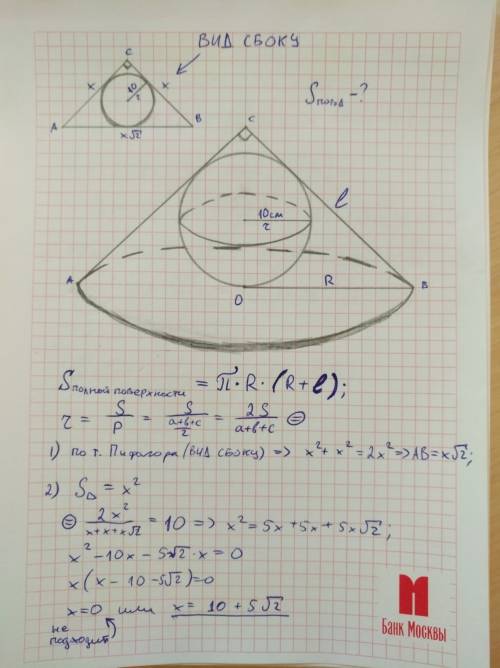 ВИД СБОКУ
C
x
10
r
x
A
B
x√2
Sполн -?
C
l
10см
r
A
R
B
O
Sполный поверхности = π·R·(R+l);
r = S/P = S/((a+b+c)/2) = 2S/(a+b+c) ⊜
1) по т. Пифагора (вид сбоку) => x²+x²=2x²=>AB=x√2;
2) S△ = x²
⊜ 2x²/(x+x+x√2) = 10 => x²=5x+5x+5x√2;
x²-10x-5√2·x=0
x(x-10-5√2)=0
x=0 или x=10+5√2
не подходит
Банк Москвы